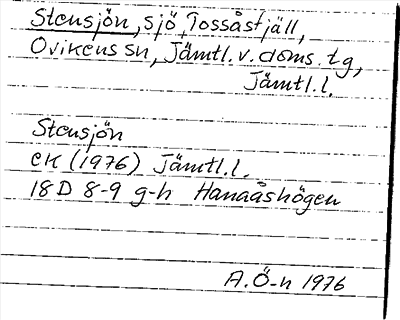 Stensjön, sjö, Tossåsfjäll,
Ovikens sn, Jämtl.v.doms.tg,
Jämtl.l.
Stensjön
EK (1976) Jämtl.l.
18D 8-9 g-h Hanaåshögen
A.Ö-n 1976